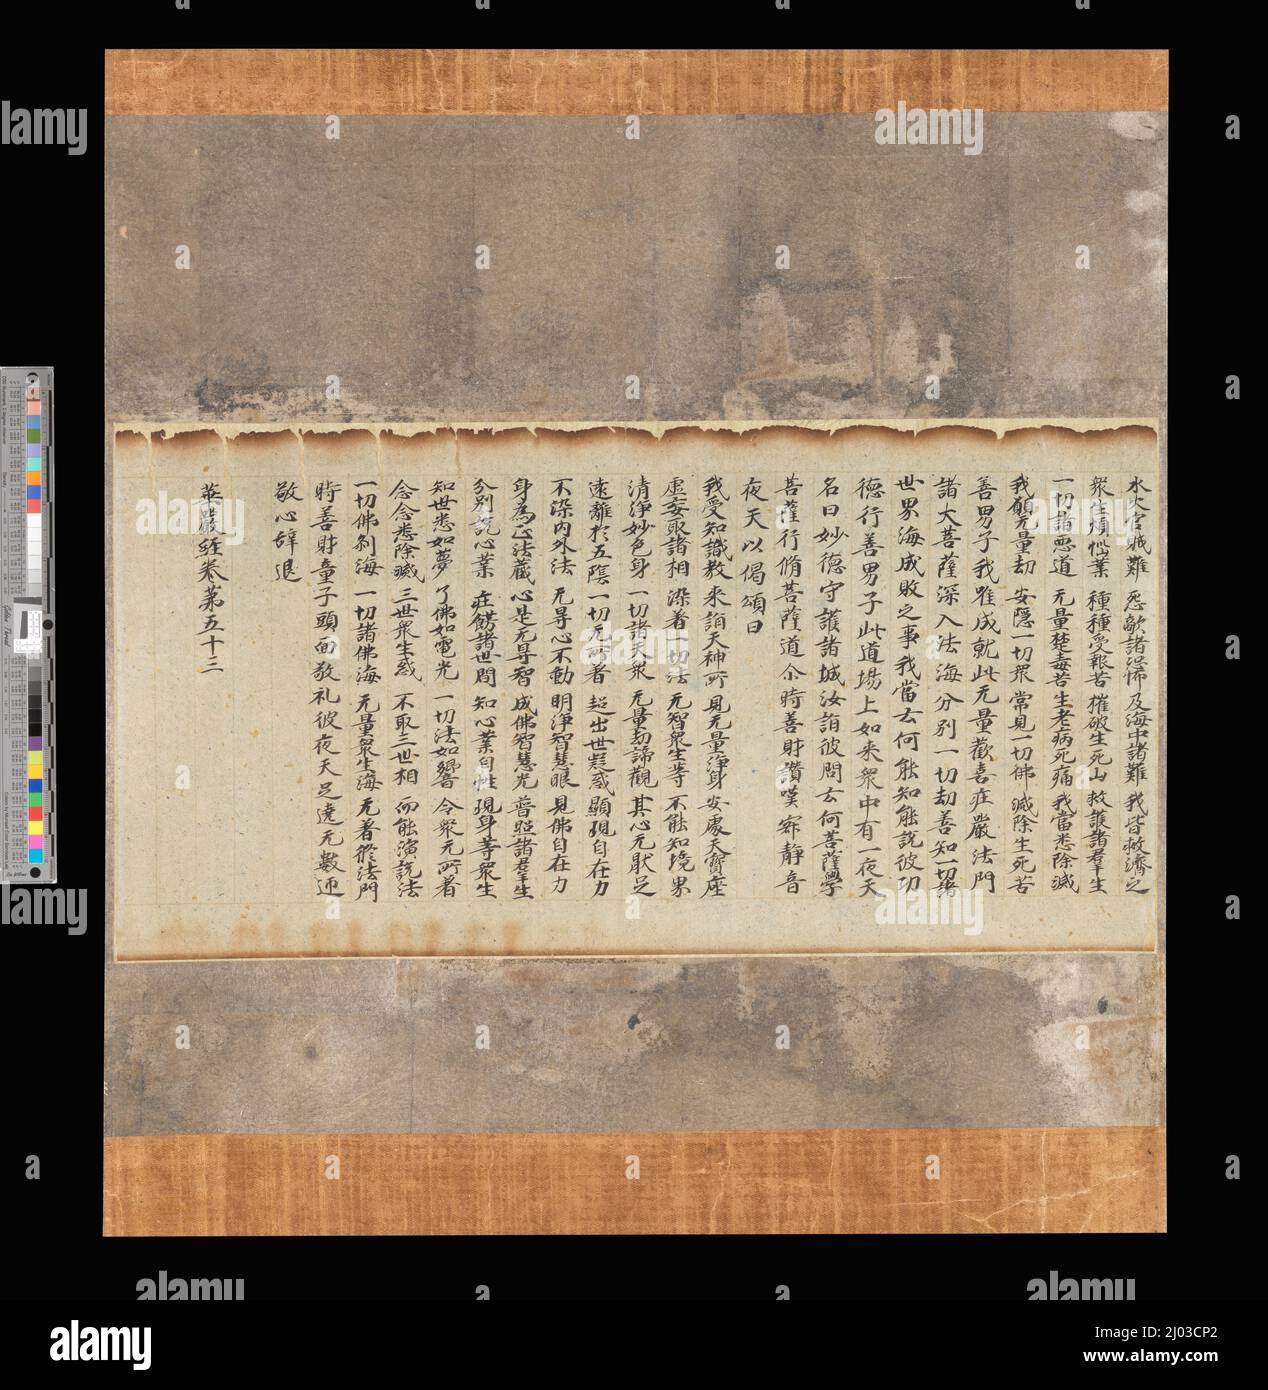 水火官賊難 恐敵諸恐怖 及海中諸難 我皆救濟之
衆生煩惱業 種種受報苦 摧破生死山 救護諸羣生
一切諸惡道 无量楚毒苦 生老病死痛 我當悉除滅
我願无量劫 安隱一切衆 常見一切佛 滅除生死苦
善男子我唯成就此无量歡喜莊嚴法門
諸大菩薩深入法海分別一切劫善知一切諸
世界海成敗之事我當云何能知能說彼功
德行善男子此道場上如来衆中有一夜天
名曰妙德守護諸城汝詣彼問云何菩薩學
菩薩行脩菩薩道尒時善財讚嘆寂靜音
夜天以偈頌曰
我受知識教 来詣天神所 見无量淨身 安處天寶座
虛妄取諸相 染着一切法 无智衆生等 不能知境界
清淨妙色身 一切諸天衆 无量劫諦觀 其心无猒足
遠離於五陰 一切无所着 超出世疑惑 顯現自在力
不染内外法 无㝵心不動 明淨智慧眼 見佛自在力
身為正法蔵 心是无㝵智 成佛智慧光 普照諸羣生
分別說心業 莊嚴諸世間 知心業自性 現身等衆生
知世悉如夢 了佛如電光 一切法如響 令衆无所着
念念悉除滅 三世衆生惑 不取三世相 而能演說法
一切佛刹海 一切諸佛海 无量衆生海 无着於法門
時善財童子頭面敬礼彼夜天足遶无數迊
敬心辞退
華嚴經卷第五十三
alamy
Image ID: 2J03CP2
www.alamy.com